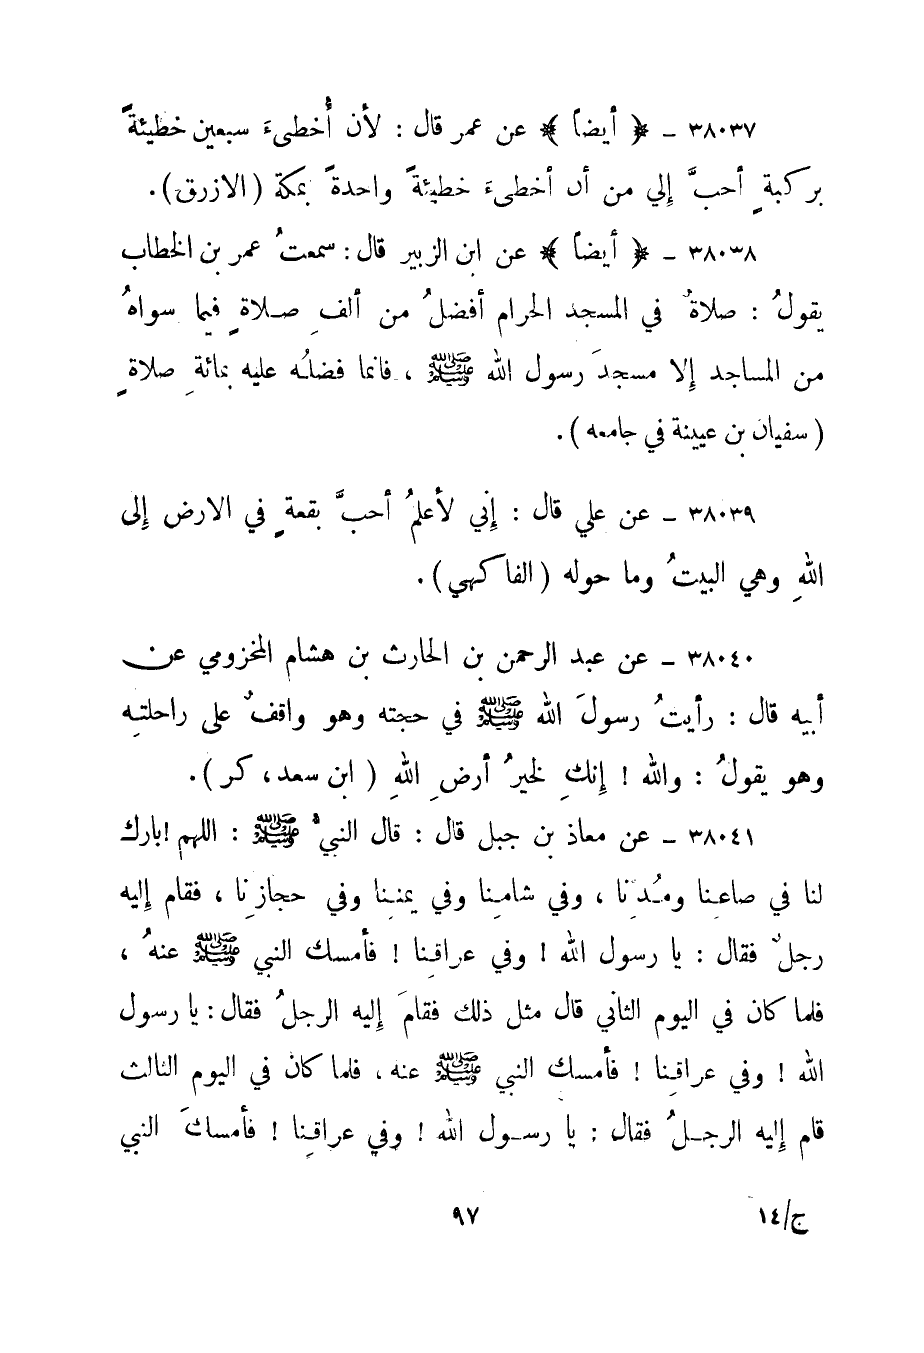 ٣٨٠٣٧ ـ ﴿ أيضاً ﴾ عن عمر قال : لأن أُخطىءَ سبعين خطيئةً
بركبةٍ أحبَّ إلي من أن أخطىءَ خطيئةً واحدةً بمكة (الازرقي).
٣٨٠٣٨ ـ ﴿ أيضاً ﴾ عن ابن الزبير قال : سمعتُ عمر بن الخطاب
يقولُ : صلاةٌ في المسجد الحرام أفضلُ من ألفِ صلاةٍ فيما سواهُ
من المساجد إلا مسجدَ رسول الله ﷺ ، فانما فضلُه عليه بمائةِ صلاةٍ
( سفيان بن عيينة في جامعه ) .
٣٨٠٣٩ ـ عن علي قال : إني لأعلمُ أحبَّ بقعةٍ في الارض إلى
اللهِ وهي البيتُ وما حوله ( الفاكهي ) .
٣٨٠٤٠ ـ عن عبد الرحمن بن الحارث بن هشام المخزومي عن
أبيه قال : رأيتُ رسولَ الله ﷺ في حجته وهو واقفٌ على راحلته
وهو يقولُ : والله ! إنكِ لخيرُ أرضِ اللهِ ( ابن سعد، كر ) .
٣٨٠٤١ ـ عن معاذ بن جبل قال : قال النبيُّ ﷺ : اللهم ! بارك
لنا في صاعِنا ومُدِّنا ، وفي شامِنا وفي يمنِنا وفي حجازِنا ، فقام إليه
رجلٌ فقال : يا رسول الله ! وفي عراقِنا ! فأمسك النبي ﷺ عنهُ ،
فلما كان في اليوم الثاني قال مثل ذلك فقامَ إليه الرجلُ فقال : يا رسول
الله ! وفي عراقِنا ! فأمسك النبي ﷺ عنه ، فلما كان في اليوم الثالث
قام إليه الرجلُ فقال : يا رسول الله ! وفي عراقِنا ! فأمسكَ النبي
ج/١٤
٩٧